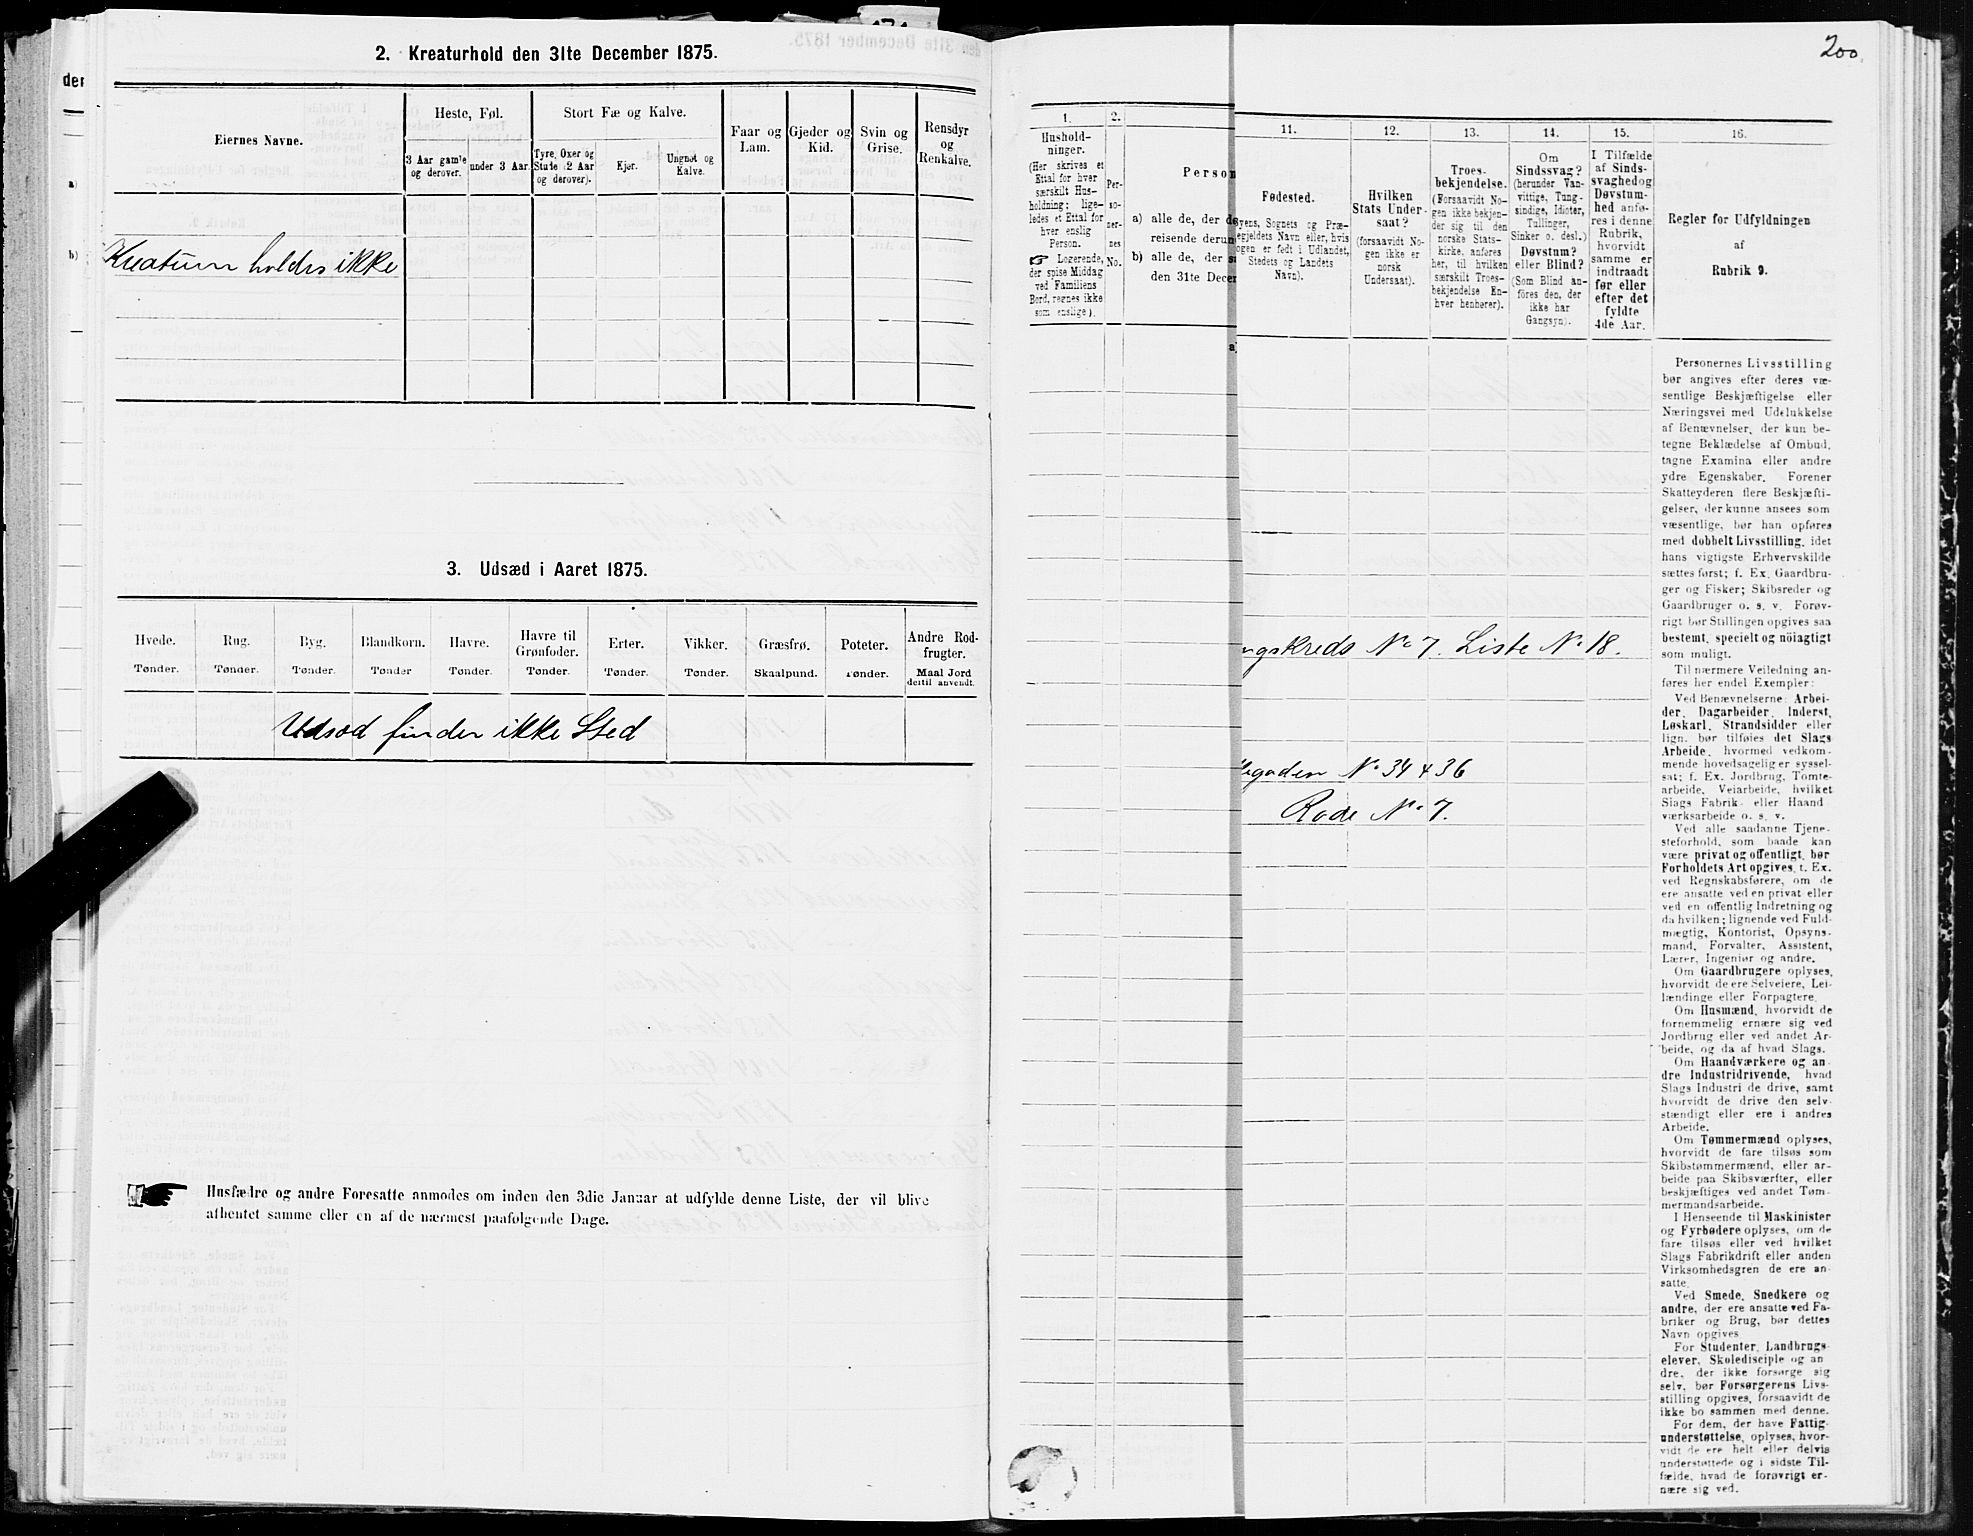 2. Kreaturhold den 31te December 1875.
Eiernes Navne.
Heste, Føl.
Stort Fæ og Kalve.
Faar og
Lam.
Gjeder og
Kid.
Svin og
Grise.
Rensdyr
og
Renkalve.
3 Aar gamle
og derover.
under 3 Aar.
Tyre, Oxer og
Stude (2 Aar
og derover).
Kjør.
Ungnøt og
Kalve.
Kreaturer holdes ikke
3. Udsæd i Aaret 1875.
Hvede.
Rug.
Byg.
Blandkorn.
Havre.
Havre til
Grønfoder.
Erter.
Vikker.
Græsfrø.
Poteter.
Andre Rod-
frugter.
Tønder.
Tønder.
Tønder.
Tønder
Tønder.
Tønder.
Tønder.
Tønder.
Skaalpund.
Tønder.
Maal Jord
dertil anvendt.
Udsæd finder ikke Sted
Husfædre og andre Foresatte anmodes om inden den 3die Januar at udfylde denne Liste, der vil blive
afhentet samme eller en af de nærmest paafølgende Dage.
200.
1.
Hushold-
ninger.
(Her skrives et
Ettal for hver
særskilt Hus-
holdning; lige-
ledes et Ettal for
hver enslig
Person.
Logerende,
der spise Middag
ved Familiens
Bord, regnes ikke
som enslige).
2.
Per-
so-
ner-
nes
No.
Person
a) alle de, der de
reisende derun
b) alle de, der s
den 31te Decer
a)
11.
Fødested.
Byens, Sognets og Præ-
egjeldets Navn eller, hvis
ogen er født i Udlandet,
Stedets og Landets
Navn).
12.
Hvilken
Stats Under-
saat?
(forsaavidt No-
gen ikke er
norsk
Undersaat).
13.
Troes-
bekjendelse.
(Forsaavidt No-
gen ikke bekjen-
der sig til den
norske Stats-
kirke, anføres
her, til hvilken
særskilt Troes-
bekjendelse En-
hver henhører).
14.
Om
Sindssvag?
(herunder Van-
vittige, Tung-
sindige, Idioter,
Tullinger,
Sinker o. desl.)
Døvstum?
eller Blind?
(Som Blind an-
føres den, der
ikke har
Gangsyn).
15.
I Tilfælde
af Sinds-
svaghed og
Døvstum-
hed anfø-
res i denne
Rubrik,
hvorvidt
samme er
indtraadt
før eller
efter det
fyldte
4de Aar.
16.
Regler for Udfyldningen
af
Rubrik 9.
ngskreds No 7. Liste No 18.
gaden No 34 & 36
Rode No 7.
Personernes Livsstilling
bør angives efter deres væ-
sentlige Beskjæftigelse eller
Næringsvei med Udelukkelse
af Benævnelser, der kun be-
tegne Beklædelse af Ombud,
tagne Examina eller andre
ydre Egenskaber. Forener
Skatteyderen flere Beskjæfti-
gelser, der kunne ansees som
væsentlige, bør han opføres
med dobbelt Livsstilling, idet
hans vigtigste Erhvervskilde
sættes først; f. Ex. Gaardbru-
ger og Fisker; Skibsreder og
Gaardbruger o. s. v. Forøv-
rigt bør Stillingen opgives saa
bestemt, specielt og nöiagtigt
som muligt.
Til nærmere Veiledning an-
føres her endel Exempler:
Ved Benævnelserne: Arbei-
der, Dagarbeider, Inderst,
Løskarl, Strandsidder eller
lign. bør tilføies det Slags
Arbeide, hvormed vedkom-
mende hovedsagelig er syssel-
sat; f. Ex. Jordbrug, Tomte-
arbeide, Veiarbeide, hvilket
Slags Fabrik- eller Haand
værksarbeide o. s. v.
Ved alle saadanne Tjene-
steforhold, som baade kan
være privat og offentligt, bør
Forholdets Art opgives, f. Ex.
ved Regnskabsførere, om de
ere ansatte ved en privat eller
ved en offentlig Indretning og
da hvilken; lignende ved Fuld-
mægtig, Kontorist, Opsyns-
mand, Forvalter, Assistent,
Lærer, Ingeniør og andre.
Om Gaardbrugere oplyses,
hvorvidt de ere Selveiere, Lei-
lændinge eller Forpagtere.
Om Husmænd, hvorvidt de
fornemmelig ernære sig ved
Jordbrug eller ved andet Ar-
beide, og da af hvad Slags.
Om Haandværkere og an-
dre Industridrivende, hvad
Slags Industri de drive, samt
hvorvidt de drive den selv-
stændigt eller ere i andres
Arbeide.
Om Tømmermænd oplyses,
hvorvidt de fare tilsøs som
Skibstømmermænd, eller ar-
beide paa Skibsværfter, eller
beskjæftiges ved andet Tøm-
mermandsarbeide.
I Henseende til Maskinister
og Fyrbødere oplyses, om de
fare tilsøs eller ved hvilket
Slags Fabrikdrift eller anden
Virksomhedsgren de ere an-
satte.
Ved Smede, Snedkere og
andre, der ere ansatte ved Fa-
briker og Brug, bør dettes
Navn opgives
For Studenter, Landbrugs-
elever, Skoledisciple og an
dre, der ikke forsørge sig
selv, bør Forsørgerens Livs-
stilling opgives, forsaavidt de
ikke bo sammen med denne.
For dem, der have Fattig-
understøttelse, oplyses, hvor-
vidt de ere helt eller delvis
understøttede og i sidste Til-
fælde, hvad de forøvrigt er-
nære sig ved.